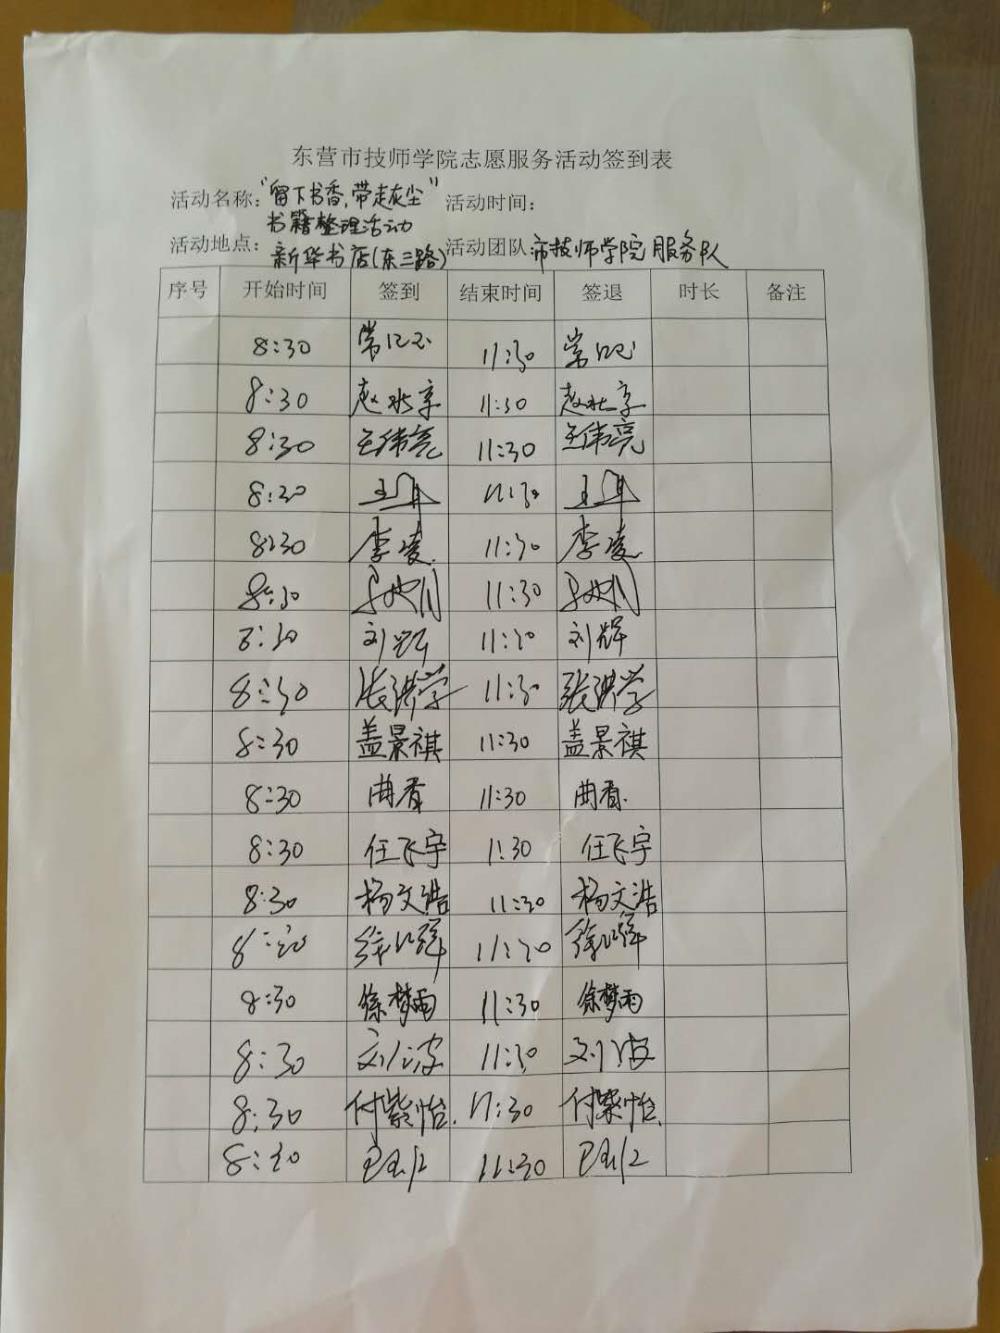 东营市技师学院志愿服务活动签到表
活动名称:“留下书香,带走灰尘” 活动时间:
书籍整理活动
活动地点: 新华书店(东三路) 活动团队: 市技师学院服务队
序号 开始时间 签到 结束时间 签退 时长 备注
8:30 11:30
8:30 11:30
8:30 王伟亮 11:30 王伟亮
8:30 11:30
8:30 李凌 11:30 李凌
8:30 11:30
8:30 刘辉 11:30 刘辉
8:30 张洪学 11:30 张洪学
8:30 盖景祺 11:30 盖景祺
8:30 曲春 11:30 曲春
8:30 任飞宇 11:30 任飞宇
8:30 杨文浩 11:30 杨文浩
8:30 11:30
8:30 徐梦雨 11:30 徐梦雨
8:30 11:30
8:30 付紫怡 11:30 付紫怡
8:30 11:30